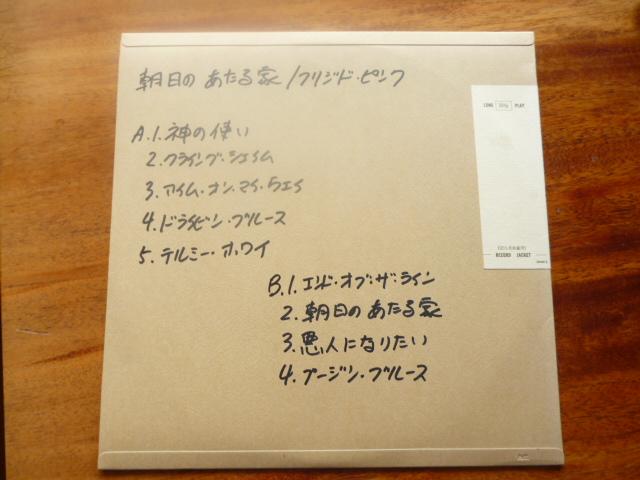 朝日の あたる 家/フリジド・ピンク
LONG PLAY
A.1.神の使い
2.クライング・シェイム
3.アイム・オン・マイ・ウェイ
4.ドライビン・ブルース
5.テルミー・ホワイ
RECORD JACKET
B.1.エンド・オブ・ザ・ライン
2.朝日の あたる 家
3.悪人になりたい
4.プージン・ブルース